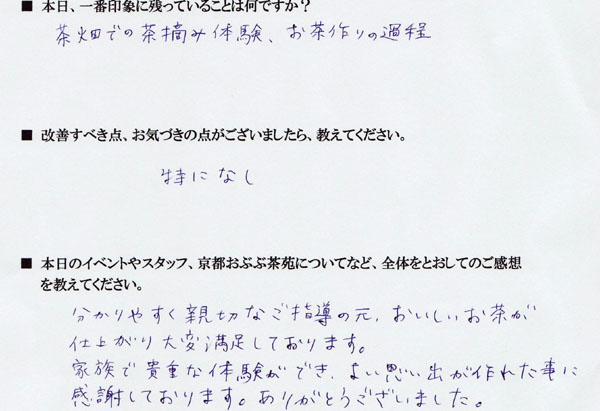 ■ 本日、一番印象に残っていることは何ですか？
茶畑での茶摘み体験、お茶作りの過程
■ 改善すべき点、お気づきの点がございましたら、教えてください。
特になし
■ 本日のイベントやスタッフ、京都おぶぶ茶苑についてなど、全体をとおしてのご感想
を教えてください。
分かりやすく親切なご指導の元、おいしいお茶が
仕上がり大変満足しております。
家族で貴重な体験ができ、よい思い出が作れた事に
感謝しております。ありがとうございました。